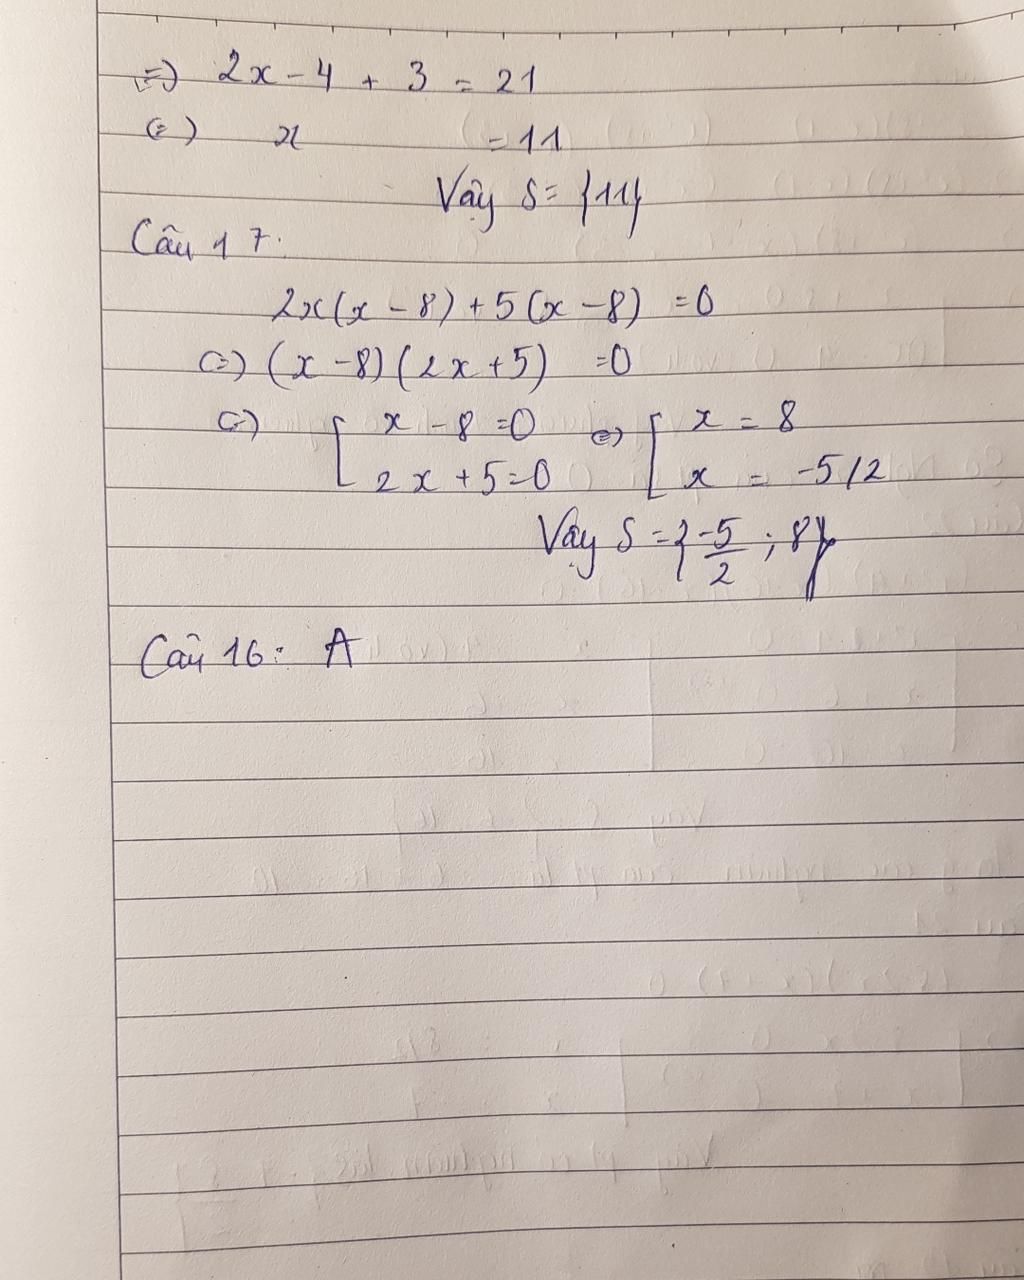 =) 2x - 4 + 3 = 21
(=) x = 11
Vậy S = {11}
Câu 17:
2x(x - 8) + 5(x - 8) = 0
(=) (x - 8)(2x + 5) = 0
(=) [ x - 8 = 0 (=) [ x = 8
2x + 5 = 0 x = -5/2
Vậy S = {-5/2 ; 8}
Câu 16: A